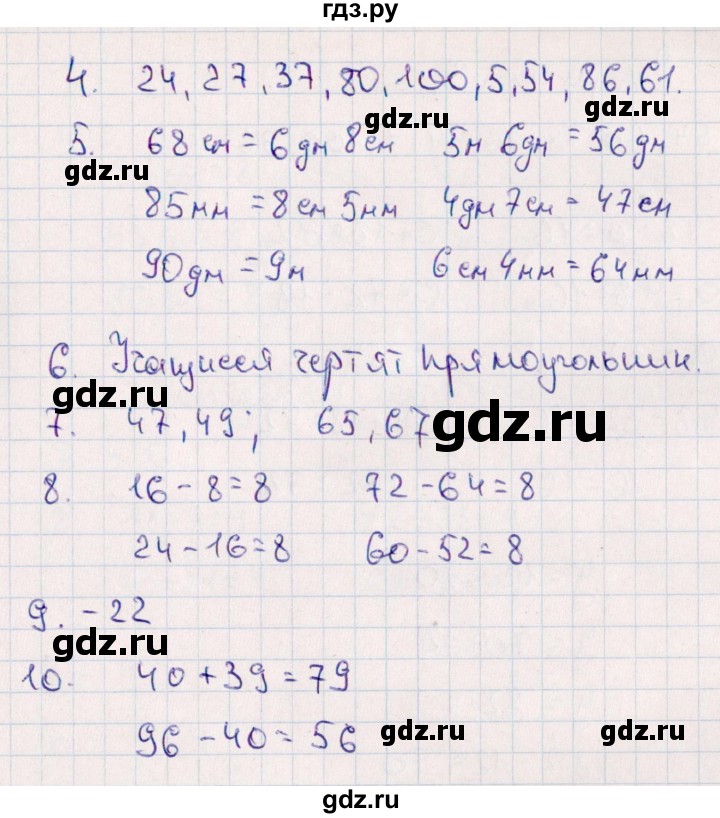 гдз.ру
4. 24, 27, 37, 80, 100, 5, 54, 86, 61.
gdz.ru
gdz.ru
5. 68 см = 6 дм 8 см 5 м 6 дм = 56 дм
gdz.ru
gdz.ru
85 мм = 8 см 5 мм 4 дм 7 см = 47 см
90 дм = 9 м 6 см 4 мм = 64 мм
6. Учащиеся чертят прямоугольник.
gdz.ru
7. 47, 49; 65, 67
gdz.ru
8. 16 - 8 = 8 72 - 64 = 8
24 - 16 = 8 60 - 52 = 8
9. - 22
gdz.ru
10. 40 + 39 = 79
96 - 40 = 56
gdz.ru
gdz.ru
gdz.ru